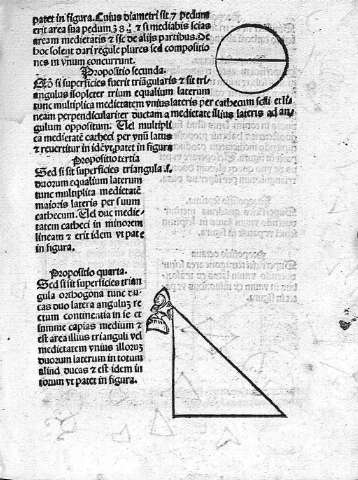 patet in figura. Cuius diametri sit .7 pedum
erit area sua pedum 38 ½ & si mediabis scias
aream medietatis & sic de alijs partibus. De
hoc solent dari regule plures sed compositio
nes in vnum concurrunt.
Propositio secunda.
si superficies fuerit triãgularis & sit tri
angulus isopleter trium equalium laterum
tunc multiplica medietatem vnius lateris per cathecum scilicet li
neam perpendiculariter ductam a medietate illius lateris ad an
gulum oppositum. Uel multipli
ca medietatẽ catheci per vnũ latus
& reuertitur in idẽ vt patet in figura
Propositio tertia
Sed si sit superficies triangula .s.
duorum equalium laterum
tunc multiplica medietatẽ
maioris lateris per suum
cathecum. Uel duc medie-
tatem catheci in minorem
lineam & erit idem vt pate
in figura.
Propositio quarta.
Sed si sit superficies trian
gula orthogona tunc du-
cas duo latera angulum re
ctum continentia in se et
summe capias medium &
est area illius trianguli vel
medietatem vnius illorum
duorum laterum in totum
aliud ducas & est idem in
totum vt patet in figura.